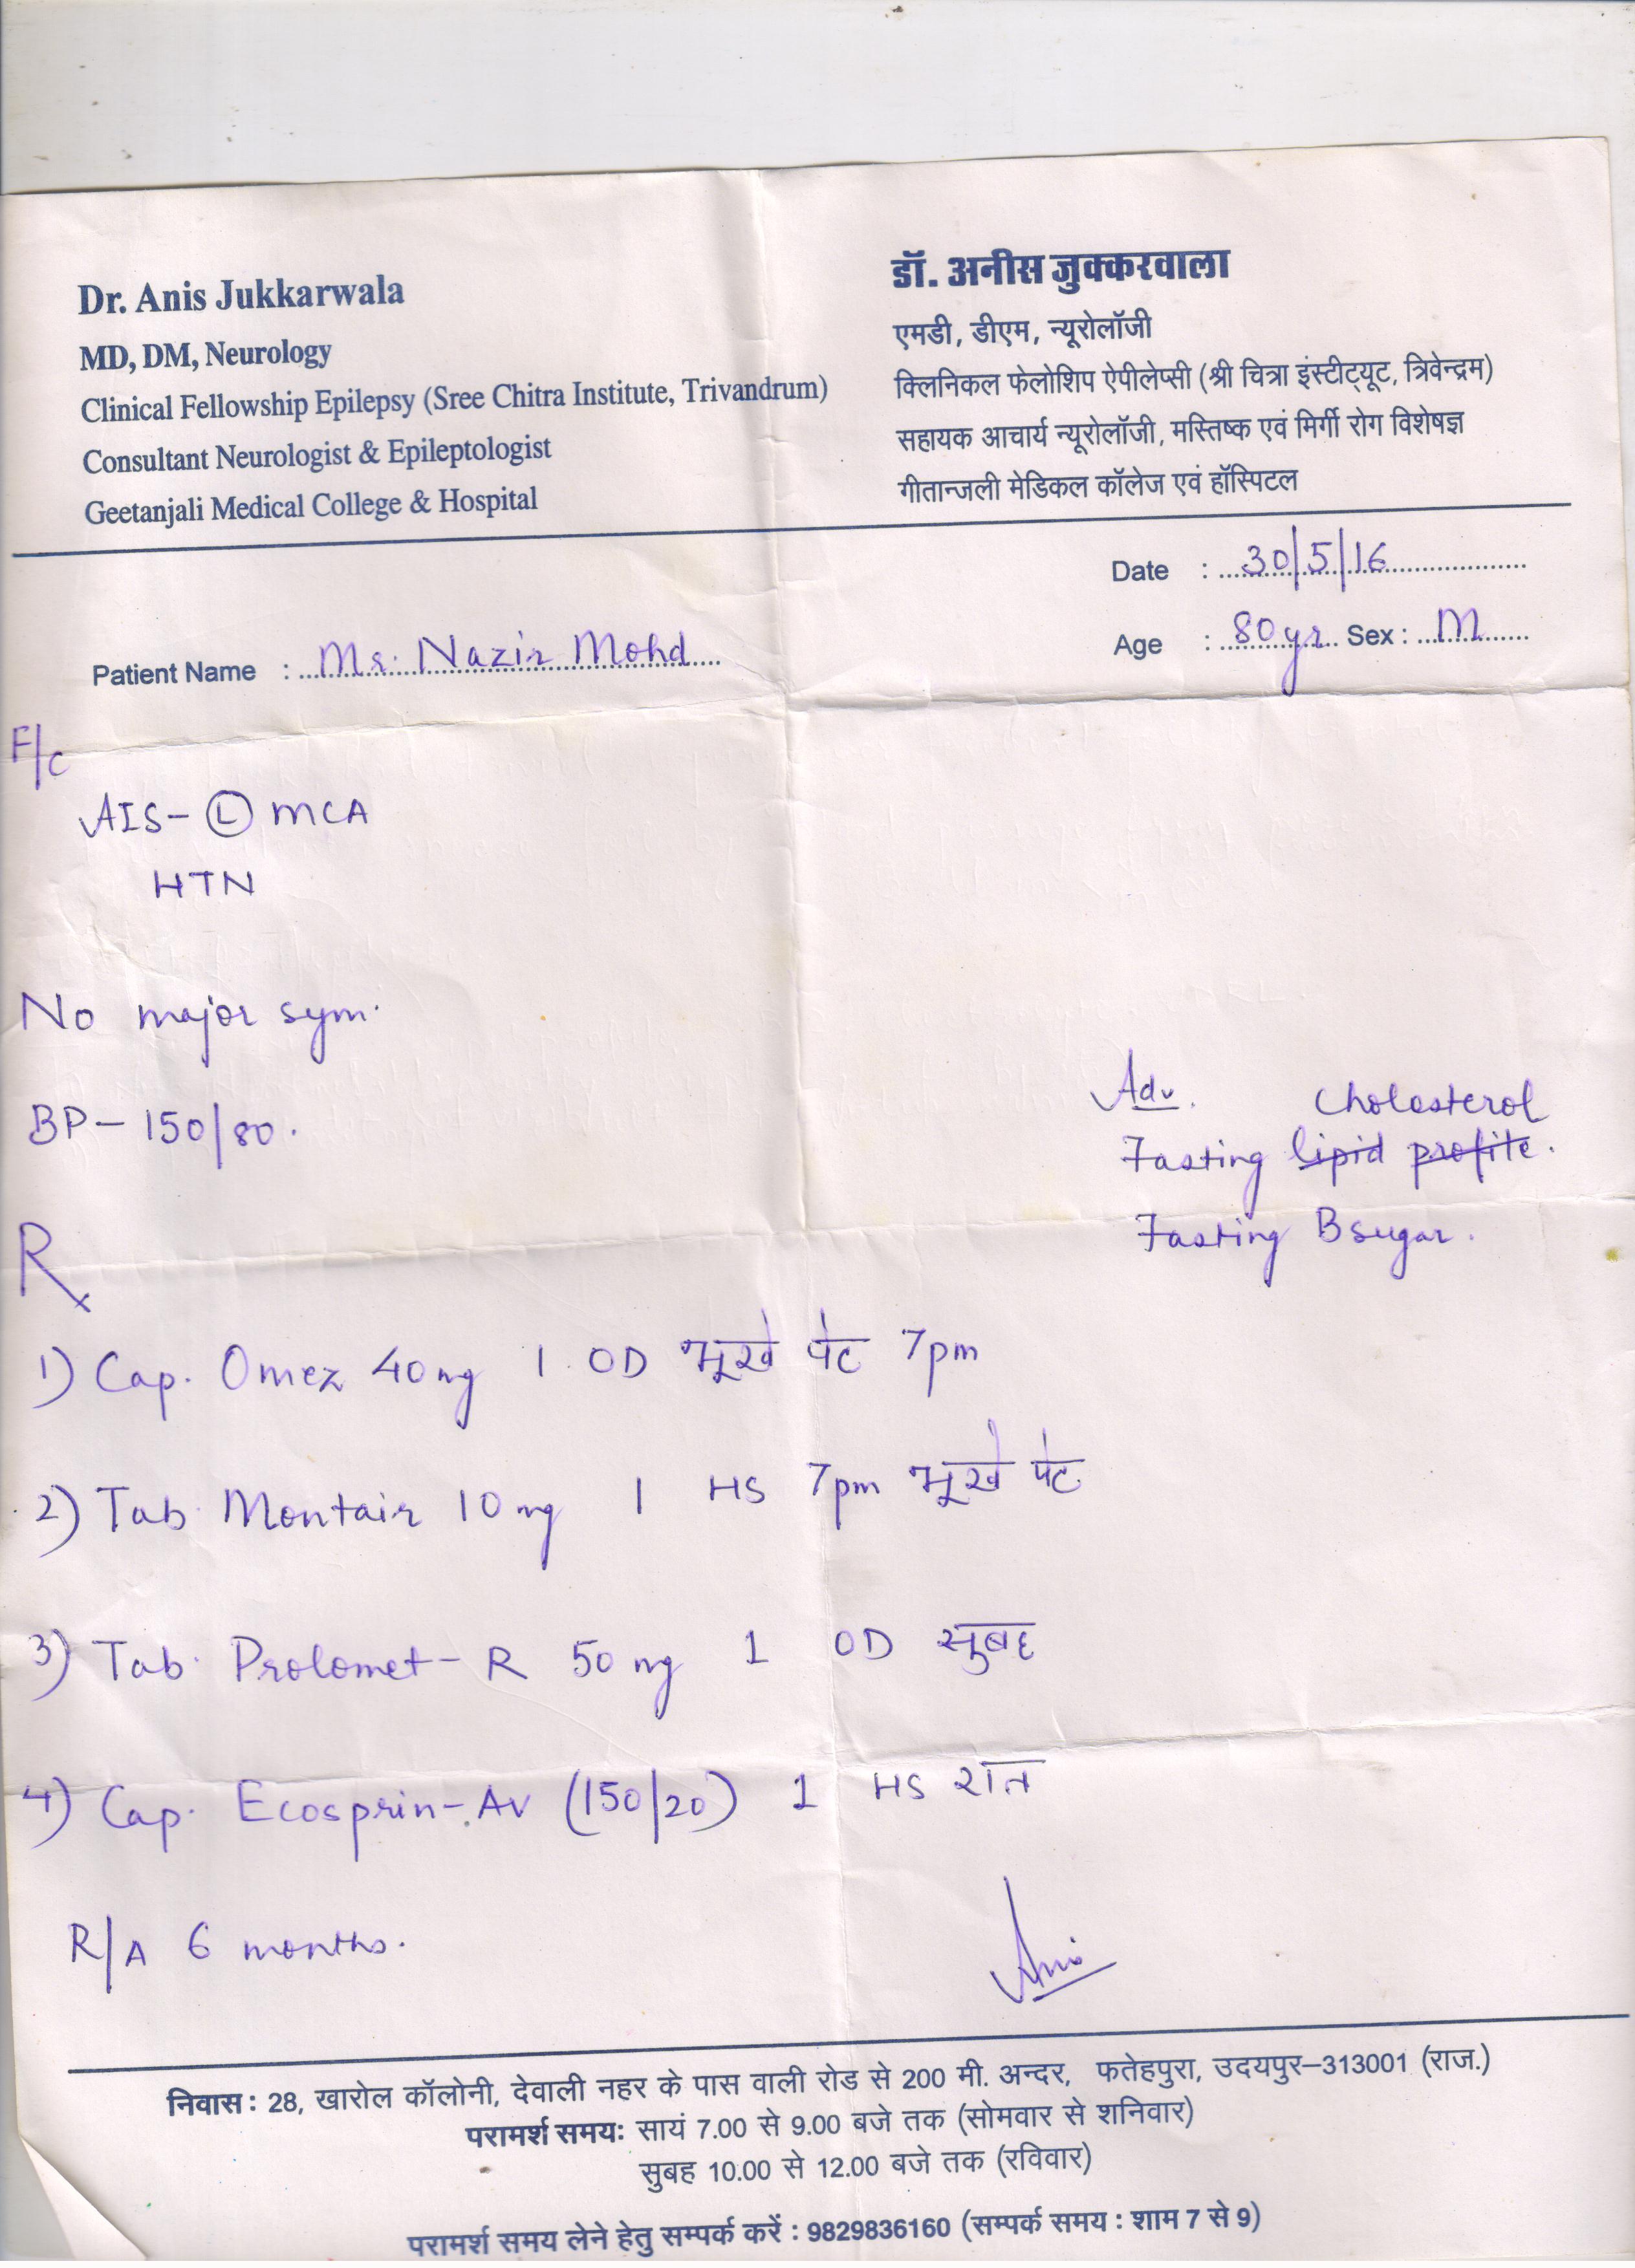 Dr. Anis Jukkarwala
MD, DM, Neurology
Clinical Fellowship Epilepsy (Sree Chitra Institute, Trivandrum)
Consultant Neurologist & Epileptologist
Geetanjali Medical College & Hospital
डॉ. अनीस जुक्करवाला
एमडी, डीएम, न्यूरोलॉजी
क्लिनिकल फेलोशिप ऐपीलेप्सी (श्री चित्रा इंस्टीट्यूट, त्रिवेन्द्रम)
सहायक आचार्य न्यूरोलॉजी, मस्तिष्क एवं मिर्गी रोग विशेषज्ञ
गीतान्जली मेडिकल कॉलेज एवं हॉस्पिटल
Date : 30/5/16
Patient Name : Mr. Nazir Mohd
Age : 80yr Sex : M
F/c
AIS- Ⓛ MCA
HTN
No major sym.
BP- 150/80.
Adv. Cholesterol
Fasting lipid profile.
Fasting B sugar.
Rx
1) Cap. Omez 40mg 1 OD भूखे पेट 7pm
2) Tab Montair 10mg 1 HS 7pm भूखे पेट
3) Tab. Prolomet-R 50mg 1 OD सुबह
4) Cap. Ecosprin-AV (150/20) 1 HS रात
R/A 6 months.
Anis
निवास : 28, खारोल कॉलोनी, देवाली नहर के पास वाली रोड से 200 मी. अन्दर, फतेहपुरा, उदयपुर–313001 (राज.)
परामर्श समयः सायं 7.00 से 9.00 बजे तक (सोमवार से शनिवार)
सुबह 10.00 से 12.00 बजे तक (रविवार)
परामर्श समय लेने हेतु सम्पर्क करें : 9829836160 (सम्पर्क समय : शाम 7 से 9)